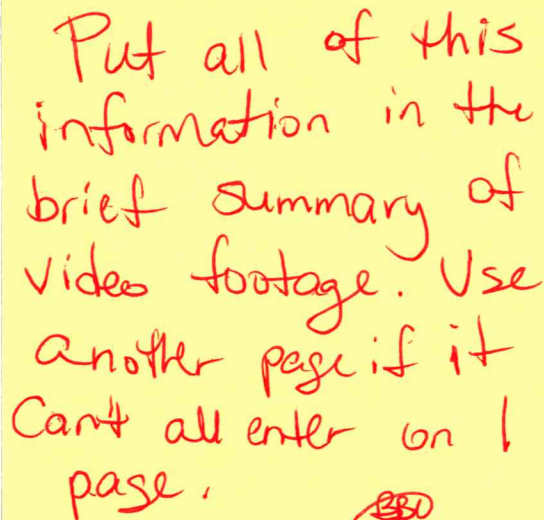 Put all of this
information in the
brief summary of
video footage. Use
another page if it
Can't all enter on 1
page.